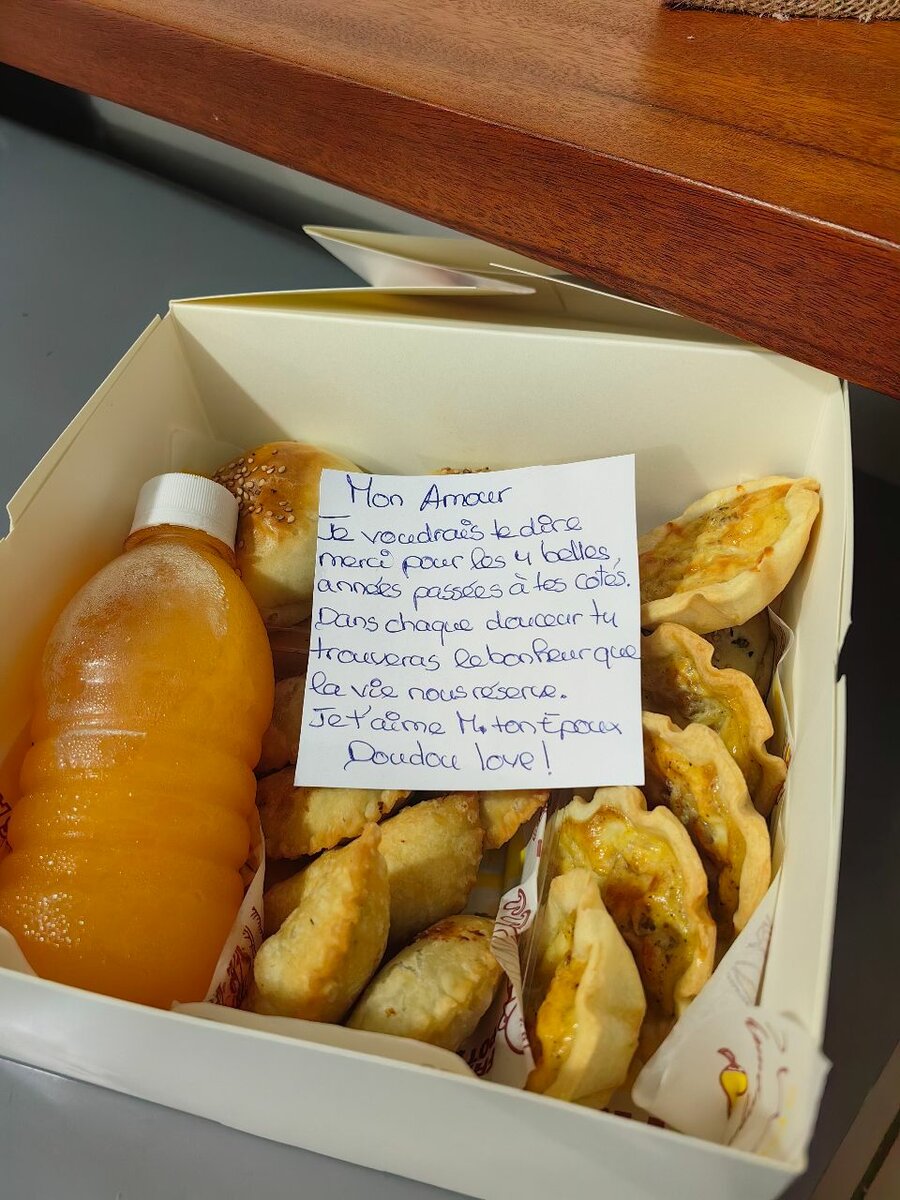 Mon Amour
Je voudrais te dire
merci pour les 4 belles
années passées à tes cotés.
Dans chaque douceur tu
trouveras le bonheur que
la vie nous réserve.
Je t'aime M. ton Époux
Doudou love!